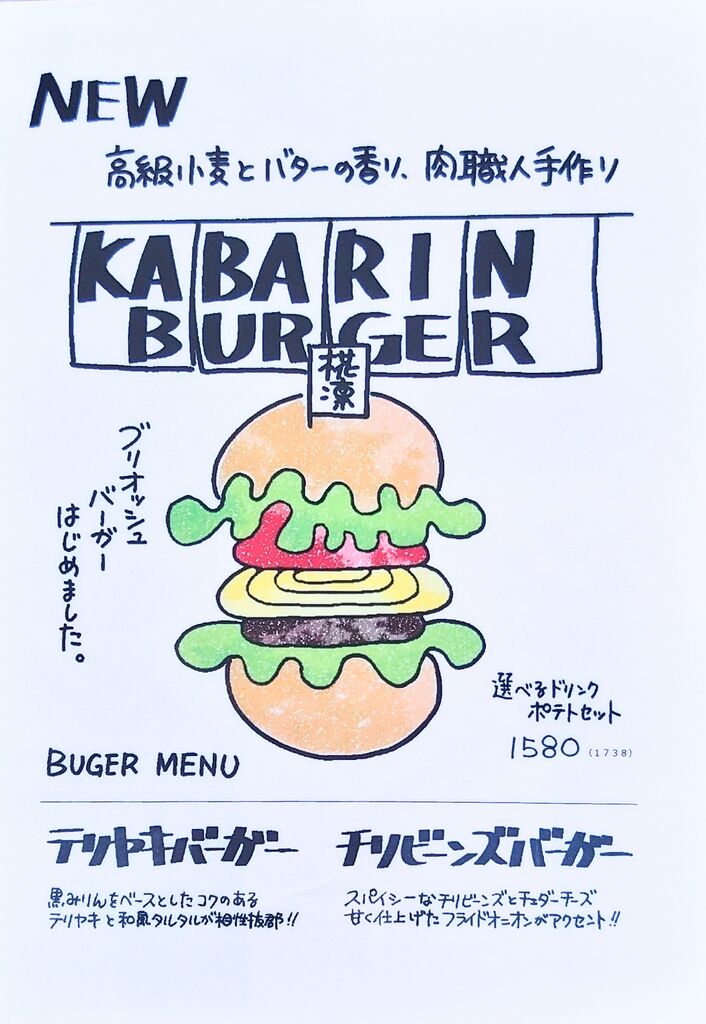 NEW
高級小麦とバターの香り、肉職人手作り
KABARIN
BURGER
椛凜
ブリオッシュ
バーガー
はじめました。
選べるドリンク
ポテトセット
1580 (1738)
BUGER MENU
テリヤキバーガー
黒みりんをベースとしたコクのある
テリヤキと和風タルタルが相性抜群!!
チリビーンズバーガー
スパイシーなチリビーンズとチェダーチーズ
甘く仕上げたフライドオニオンがアクセント!!